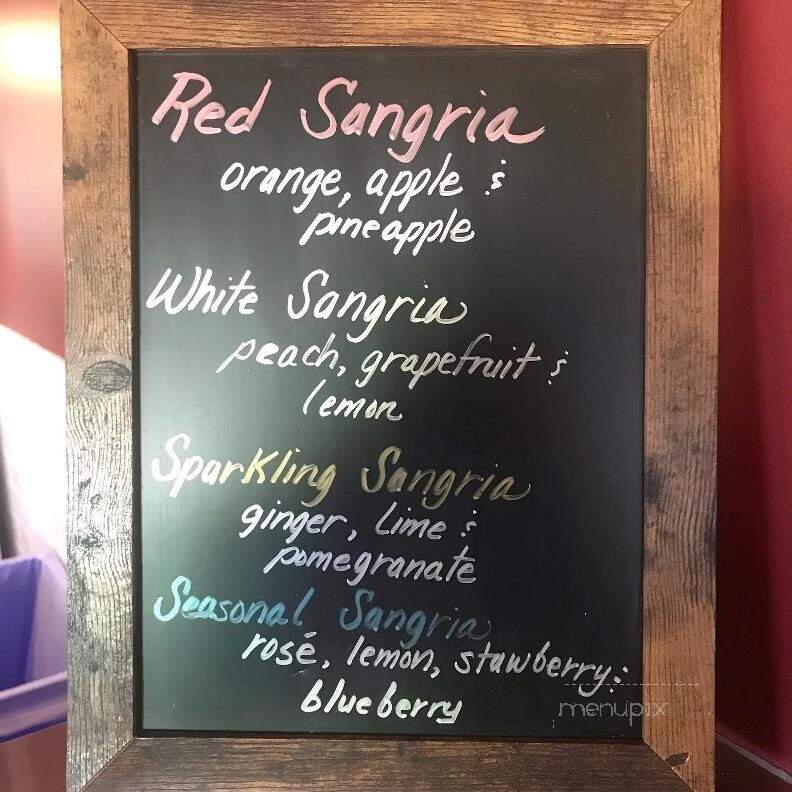 Red Sangria
orange, apple &
pineapple
White Sangria
peach, grapefruit &
lemon
Sparkling Sangria
ginger, Lime &
pomegranate
Seasonal Sangria
rosé, lemon, stawberry &
blueberry
menupix